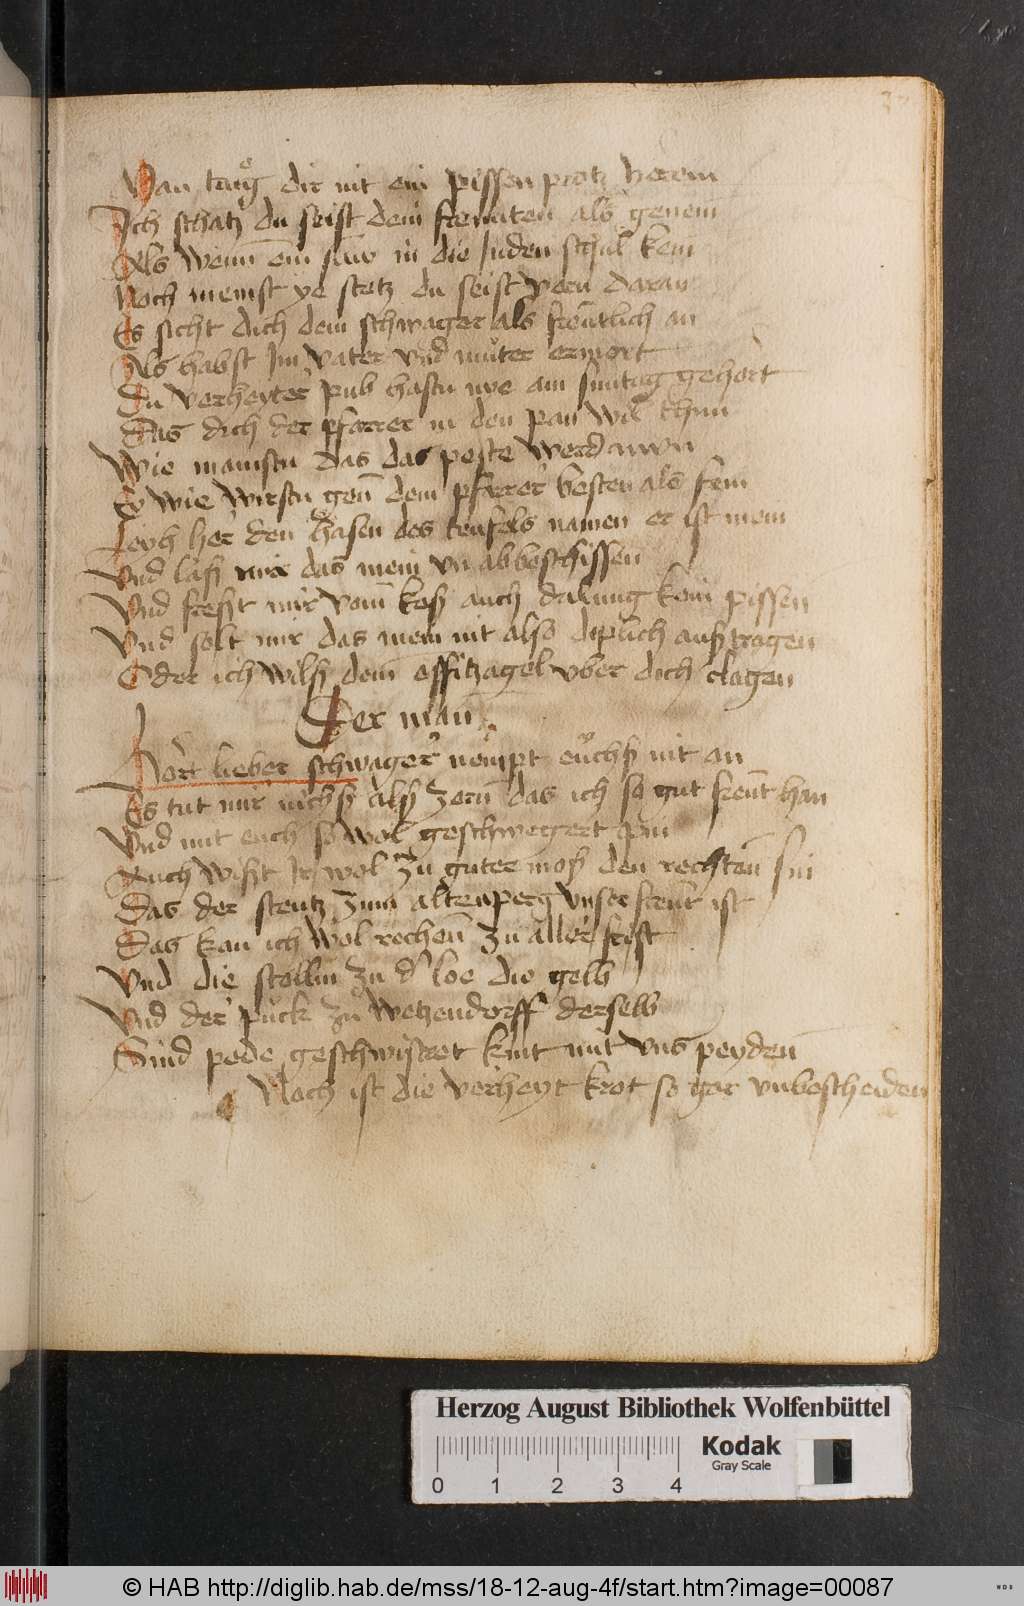 Man traug dir nit ein pissen protz herein
Ich schatz du seist dein freunten als genem
Als wenn ein saw in die Juden schul kem
Noch meinst ye stetz du seist vorn daran
Es sicht dich dein schwager als freuntlich an
Als habst Im vater vnd muter ermort
Du verheyter pub hastu nye am suntag gehort
Das dich der pfarrer in den pan wil thun
Wie mainstu das das peste werd nwn
O wie wirstu gen dem pfarrer besten als fein
Leyh her den hasen des teufels namen er ist mein
Vnd lass mir das mein vnabbeschissen
Vnd fresst mir vom kess auch dalung kein pissen
Vnd solt mir das mein nit also diplich auss tragen
Oder ich wilss dem offitzagel vber dich clagen
Der man
Hort lieber schwager nempt euchss nit an
Es tut mir nichss alss zorn das ich so gut freunt han
Vnd mit euch so wol geschwegert pin
Auch wisst Ir wol zu guter moss den rechten sin
Das der steutz zum altenperg vnser freunt ist
Das kan ich wol rechen zu aller frist
Vnd die stollin zu der loe die gelb
Vnd der puck zu Wetzendorff derselb
Sind pede geschwistret kint mit vns peyden
Noch ist die verheyt krot so gar vnbescheiden
Herzog August Bibliothek Wolfenbüttel
0 1 2 3 4
Kodak
Gray Scale
© HAB http://diglib.hab.de/mss/18-12-aug-4f/start.htm?image=00087